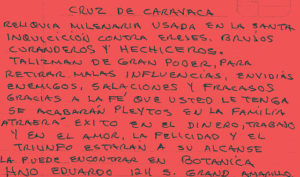 CRUZ DE CARAVACA
RELIQUIA MILENARIA USADA EN LA SANTA
INQUICICIÓN CONTRA EREJES, BRUJOS
CURANDEROS Y HECHICEROS.
TALIZMAN DE GRAN PODER, PARA
RETIRAR MALAS INFLUENCIAS, ENVIDIAS
ENEMIGOS, SALACIONES Y FRACASOS
GRACIAS A LA FÉ QUE USTED LE TENGA
SE ACABARÁN PLEYTOS EN LA FAMILIA
ATRAERÁ EXITO EN EL DINERO, TRABAJO
Y EN EL AMOR, LA FELICIDAD Y EL
TRIUNFO ESTARAN A SU ALCANSE
LA PUEDE ENCONTRAR EN BOTANICA
HNO. EDUARDO 1211 S. GRAND AMARILLO